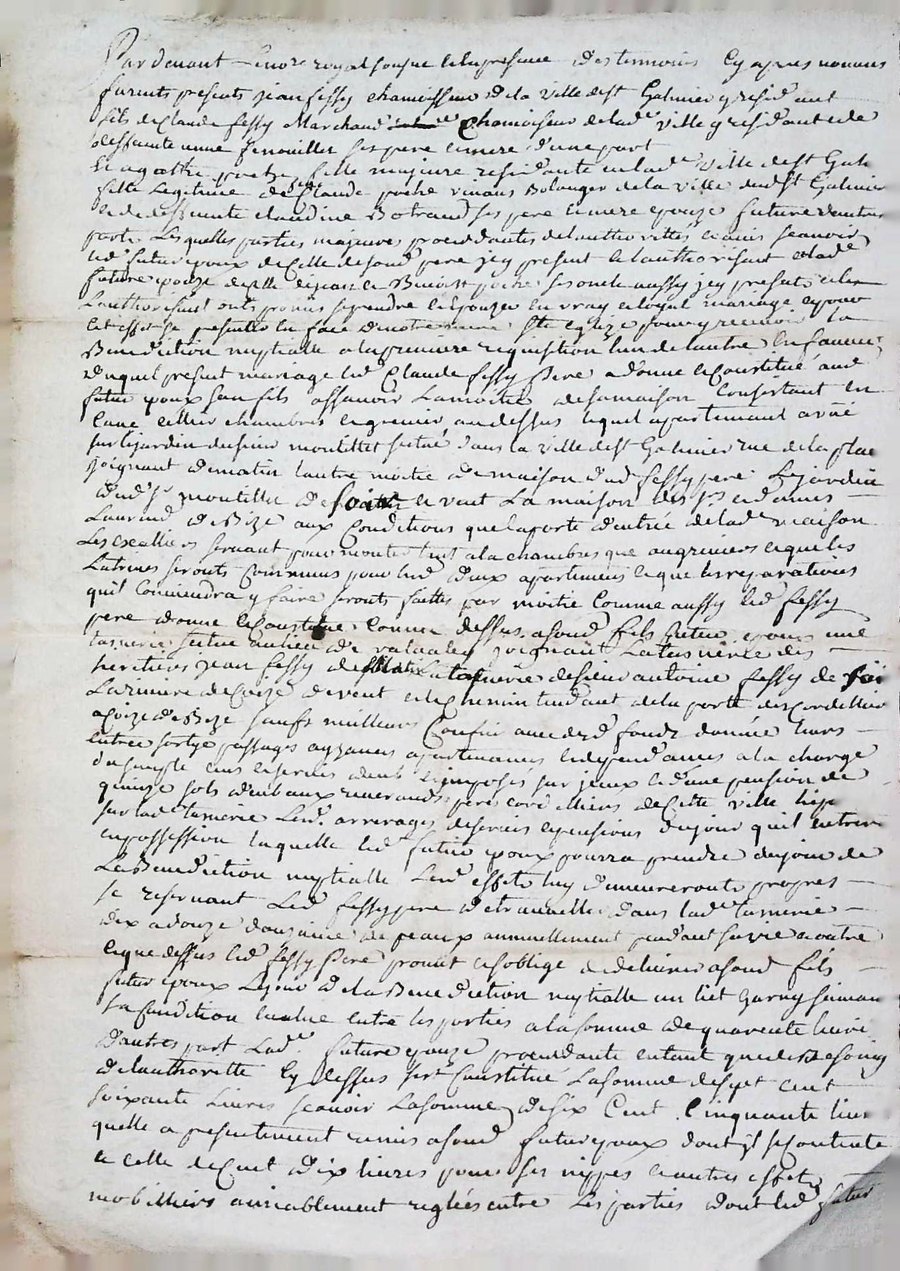 Par devant notre royal soussigné et en presence des temoins cy apres nommes
furents presents jean fessy chamoisseur de la ville de st Galmier y residant
fils de Claude fessy Marchand chamoiseur de lade ville y residant et de
deffuinte anne fenouillet ses pere et mere d'une part
Et agathe poche fille majeure residante en lade ville de st Gal
fille Legitime de Claude poche vivans Bolanger de la ville dud st Galmier
et de deffuinte claudine Botrand ses pere et mere epouze future dautre
part Les quelles parties majeures procedantes de lauthorittés et avis scavoir
led futur epoux de celle de soud pere jcy present et lauthorisant et lade
future epouze de celle de jean et Benoist poche ses oncle aussy jcy presents et la
Lauthorisant onts promis se prendre et epouzer en vray et loyal mariage et pour
cet effet se presenter en face de notre mere ste eglize pour y recevoir la
Benediction nuptialle a la premiere requisition lun de lautre En faveur
duquel present mariage led Claude fessy pere a donné et constitué aud
futur epoux son fils assavoir La moitié de sa maison Consistant en
Cave cellier chambres et grenier au dessus lequel apartement a vüe
sur le jardin du sieur montillet scitué dans la ville de st Galmier rue de la place
joignant de matin lautre moitié de maison dud fessy pere Le jardin
dud sr montillet de soir et vent La maison des srs et dames
Laurend de Bize aux Conditions que la porte d'entrée de lade maison
Les escalliers servant pour monter tant a la chambres que au greniers et que les
Latrines seronts Communs pour led deux apartements et que les reparations
quil Conviendra y faire seronts faittes par moitié Comme aussy led fessy
pere donne et Constitue comme dessus a soud fils futur epoux une
tannerie scitué au lieu de joignant La tannerie des
heritiers jean fessy de matin la tannerie de sieur antoine fessy de soir
La riviere de Coize de vent et le chemin tendant de la porte des Cordelliers
a Coize de Bize saufs meilleurs Confins avec desd fonds donnée leurs
entrée sortye passages ayzances apartenances et dependances a la charge
du simple cens et servis deub et imposés sur jceux et d'une pension de
quinze sols deub aux reverands peres cordelliers de cette ville
sur lade tannerie Lesd. arrerages des servis et pensions du jour quil entrera
en possession laquelle led futur epoux pourra prendre du jour de
La Benediction nuptialle Lesd effets luy demeureronts propres
se reservant Led fessy pere de travailler dans lade tannerie
dix a douze douzaine de peaux annuellement pendant sa vie et outre
ce que dessus led fessy Pere promet et soblige de delivrer a soud fils
futur epoux Lejour de la Benediction nuptialle un liet Garny suivant
sa Condition evalué entre les parties a la somme de quarente livre
dautre part Lade future epouze procedante entant que de besoing
de lauthoritté cy dessus sest Constitué La somme de sept cent
soixante Livres scavoir La somme de six Cent Cinquante livres
quelle a presentement remis a soud futur epoux dont jl se Contente
et celle de Cent dix livres pour ses nippes et autres effets
mobilliers amiablement reglées entre Les parties dont led futur